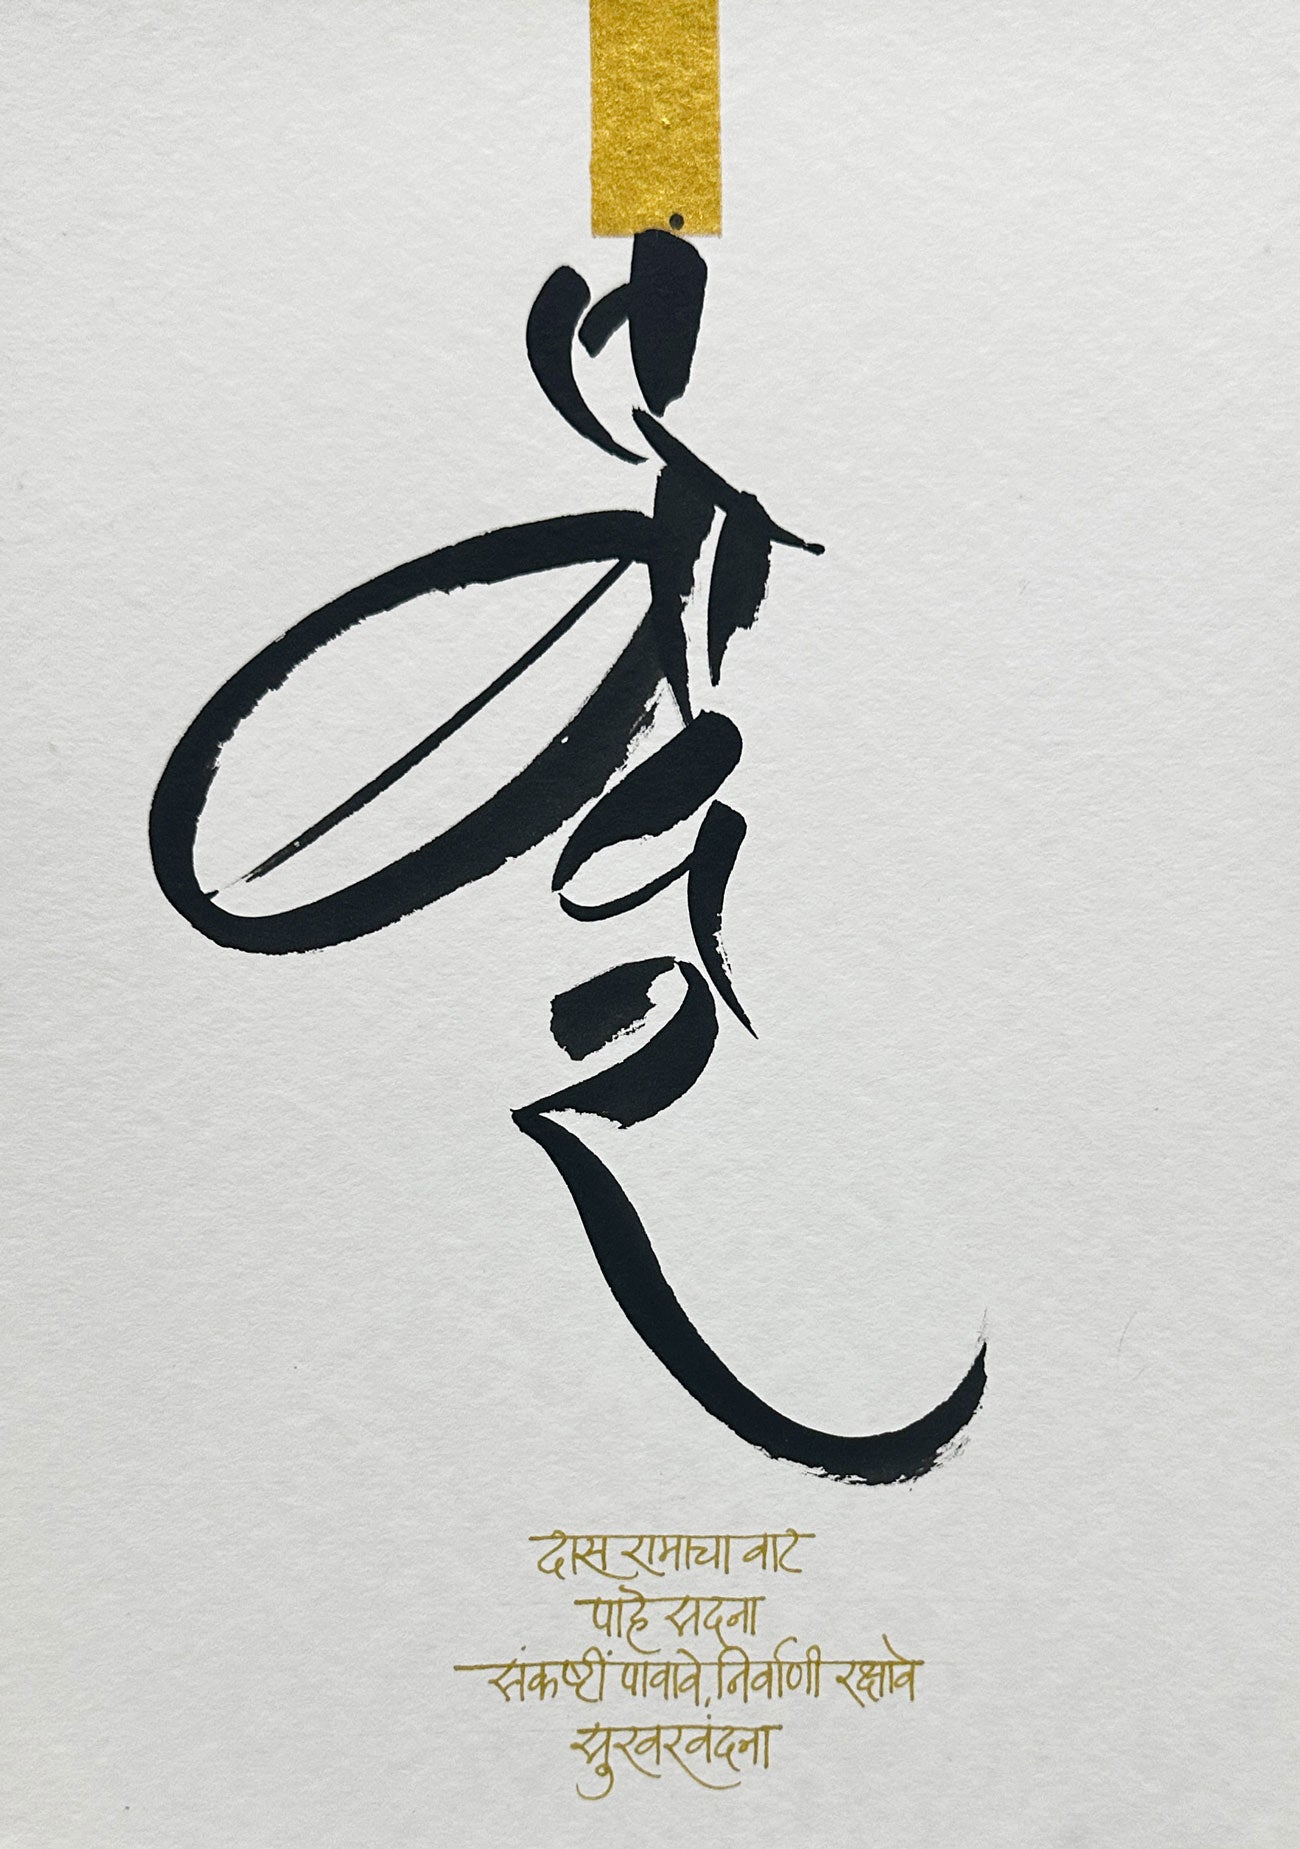 लंबोदर
दास रामाचा वाट
पाहे सदना
संकष्टीं पावावे निर्वाणी रक्षावे
सुरवरवंदना